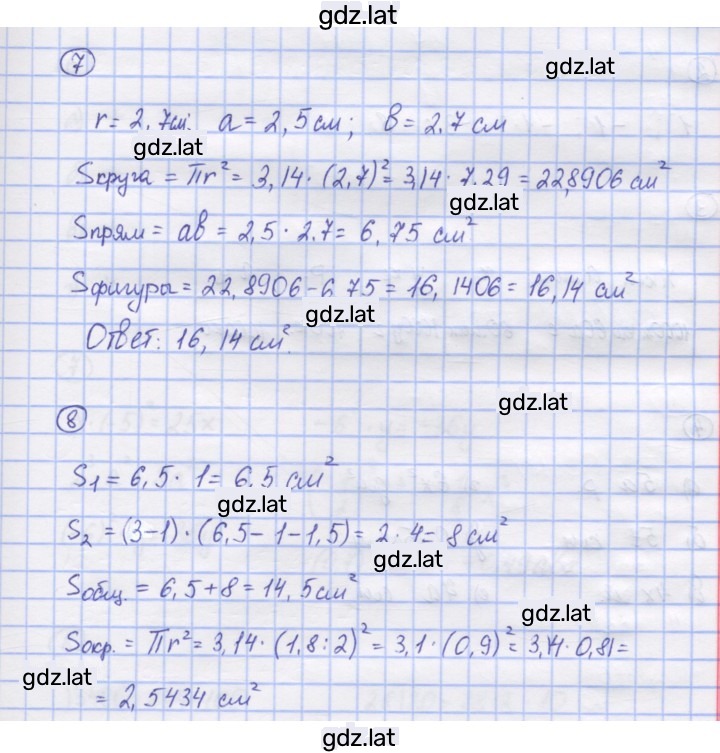 gdz.lat
7
gdz.lat
r = 2.7см. a = 2,5 см; в = 2.7 см
gdz.lat
Sкруга = Пr² = 3,14 · (2,7)² = 3,14 · 7.29 = 22,8906 см²
gdz.lat
Sпрям = ав = 2,5 · 2.7 = 6,75 см²
Sфигуры = 22,8906 - 6.75 = 16,1406 = 16,14 см²
gdz.lat
Ответ: 16,14 см².
gdz.lat
8
S1 = 6,5 · 1 = 6.5 см²
gdz.lat
S2 = (3-1) · (6,5-1-1,5) = 2 · 4 = 8 см²
gdz.lat
Sобщ. = 6,5 + 8 = 14,5 см²
gdz.lat
Sокр. = Пr² = 3,14 · (1,8 : 2)² = 3,1 · (0,9)² = 3,14 · 0,81 =
gdz.lat
= 2,5434 см²
gdz.lat